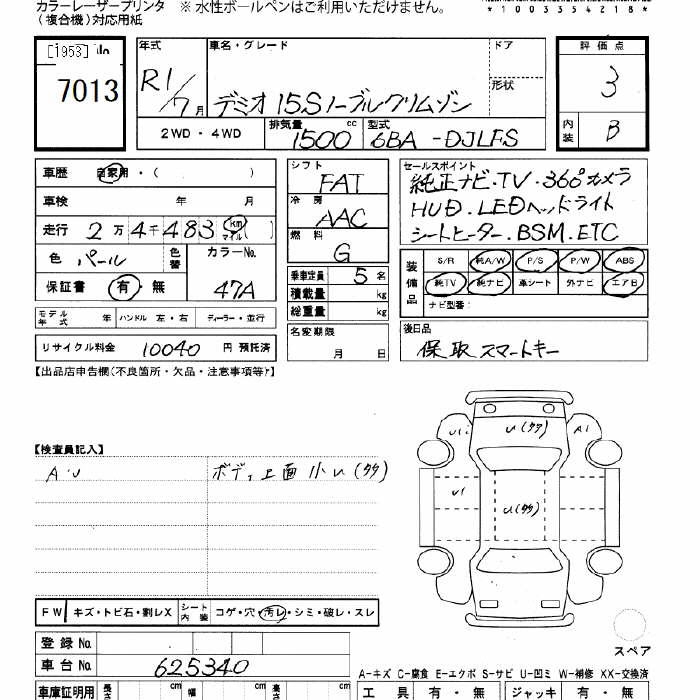 カラーレーザープリンタ ※ 水性ボールペンはご利用いただけません。
（複合機）対応用紙
*1003354218*
[1953] No
7013
年式 R1/7月
車名・グレード デミオ 15Sノーブルクリムゾン
ドア
形状
2WD・4WD
排気量 1500 cc
型式 6BA-DJLFS
評価点 3
内装 B
車歴 自家用・（ ）
車検 年 月
走行 2万4千483 km マイル ( )
色 パール 色替 カラーNo. 47A
保証書 有・無
モデル年式 年 ハンドル 左・右 ディーラー・並行
リサイクル料金 10040 円 預託済
シフト FAT
冷房 AAC
燃料 G
乗車定員 5 名
積載量 kg
総重量 kg
名変期限 月 日
セールスポイント
純正ナビ.TV.360°カメラ
HUD.LEDヘッドライト
シートヒーター.BSM.ETC
装備品 S/R 純A/W P/S P/W ABS
純TV 純ナビ 革シート 外ナビ エアB
ナビ型番:
後日品
保 取 スマートキー
【出品店申告欄(不良箇所・欠品・注意事項等)】
【検査員記入】
A・U
ボディ上面 小U(多)
U1
U(多)
A1
U1
U(多)
スペア
FW キズ・トビ石・割レX シート内装 コゲ・穴・汚レ・シミ・破レ・スレ
登録No.
車台No. 625340
A-キズ C-腐食 E-エクボ S-サビ U-凹ミ W-補修 XX-交換済
車庫証明用 長さ cm 幅 cm 高さ cm
工具 有・無 ジャッキ 有・無